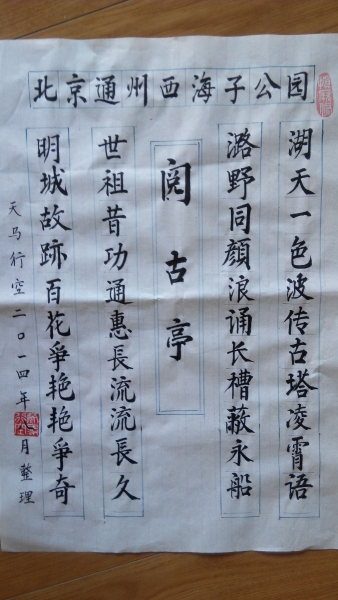 北京通州西海子公园
湖天一色波传古塔凌霄语
潞野同顏浪诵长槽蔽永船
阅古亭
世祖昔功通惠長流流長久
明城故跡百花爭艳艳爭奇
天马行空二〇一四年八月整理